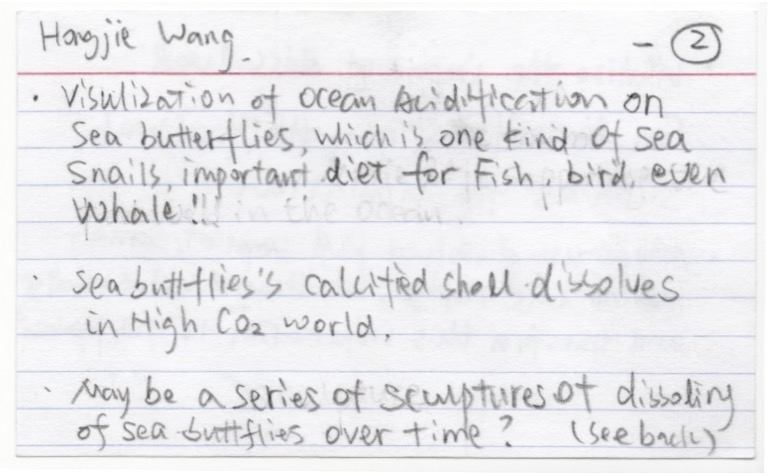 Hongjie Wang. - ②
· Visulization of ocean Acidification on
Sea butterflies, which is one kind of sea
Snails, important diet for Fish, bird, even
Whale!!!
· Sea buttflies's calcified shell dissolves
in High CO₂ world.
· May be a series of sculptures of dissoling
of sea buttflies over time? (see back)